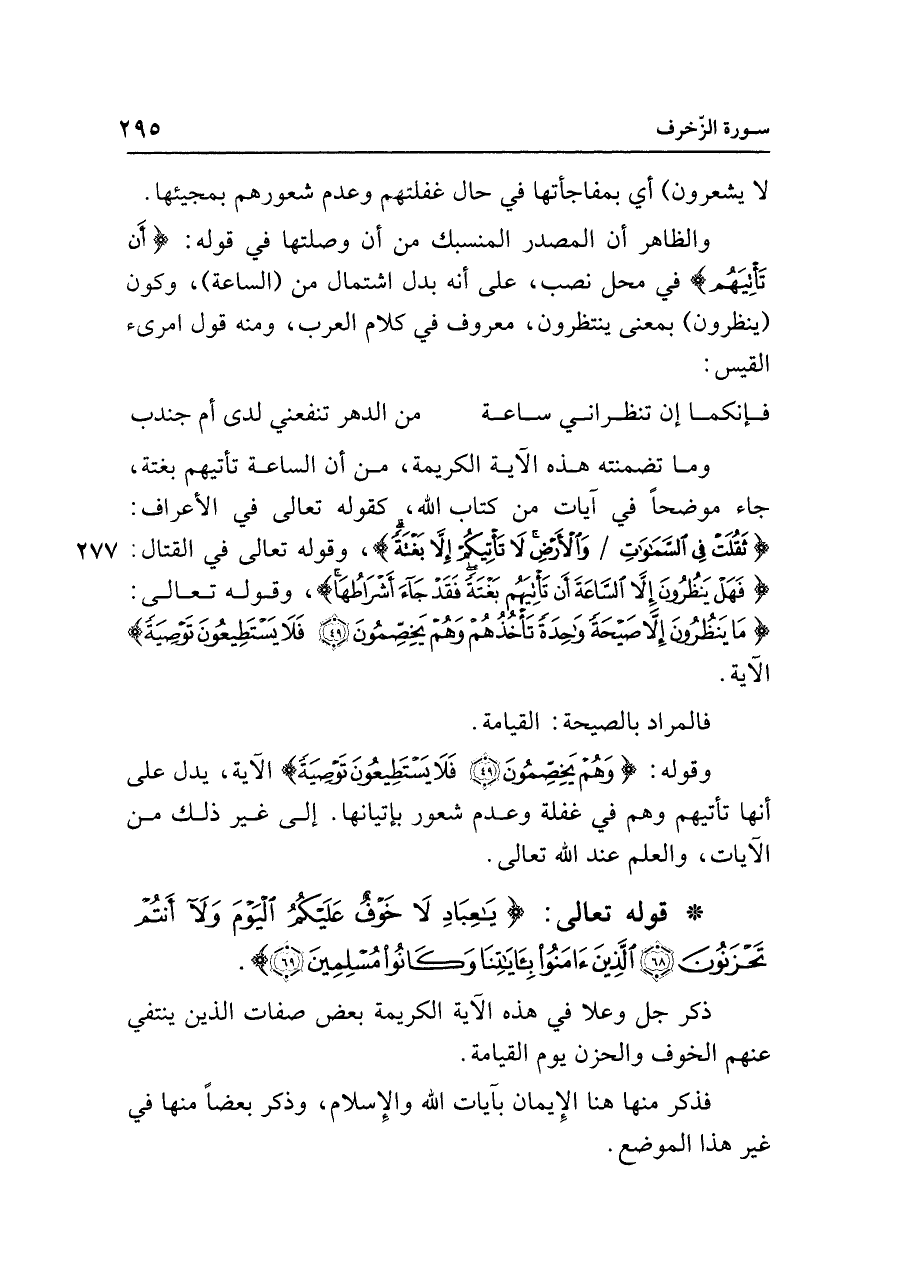 سورة الزّخرف ٢٩٥
لا يشعرون) أي بمفاجأتها في حال غفلتهم وعدم شعورهم بمجيئها.
والظاهر أن المصدر المنسبك من أن وصلتها في قوله: ﴿ أَن
تَأْتِيَهُم ﴾ في محل نصب، على أنه بدل اشتمال من (الساعة)، وكون
(ينظرون) بمعنى ينتظرون، معروف في كلام العرب، ومنه قول امرىء
القيس:
فإنكما إن تنظراني ساعة من الدهر تنفعني لدى أم جندب
وما تضمنته هذه الآية الكريمة، من أن الساعة تأتيهم بغتة،
جاء موضحاً في آيات من كتاب الله، كقوله تعالى في الأعراف:
﴿ ثَقُلَتْ فِي ٱلسَّمَٰوَٰتِ / وَٱلْأَرْضِۚ لَا تَأْتِيكُمْ إِلَّا بَغْتَةًۗ ﴾، وقوله تعالى في القتال: ٢٧٧
﴿ فَهَلْ يَنظُرُونَ إِلَّا ٱلسَّاعَةَ أَن تَأْتِيَهُم بَغْتَةًۖ فَقَدْ جَآءَ أَشْرَاطُهَاۚ ﴾، وقوله تعالى:
﴿ مَا يَنظُرُونَ إِلَّا صَيْحَةً وَٰحِدَةً تَأْخُذُهُمْ وَهُمْ يَخِصِّمُونَ ﴿٤٩﴾ فَلَا يَسْتَطِيعُونَ تَوْصِيَةً ﴾
الآية.
فالمراد بالصيحة: القيامة.
وقوله: ﴿ وَهُمْ يَخِصِّمُونَ ﴿٤٩﴾ فَلَا يَسْتَطِيعُونَ تَوْصِيَةً ﴾ الآية، يدل على
أنها تأتيهم وهم في غفلة وعدم شعور بإتيانها. إلى غير ذلك من
الآيات، والعلم عند الله تعالى.
* قوله تعالى: ﴿ يَٰعِبَادِ لَا خَوْفٌ عَلَيْكُمُ ٱلْيَوْمَ وَلَآ أَنتُمْ
تَحْزَنُونَ ﴿٦٨﴾ ٱلَّذِينَ ءَامَنُوا۟ بِـَٔايَٰتِنَا وَكَانُوا۟ مُسْلِمِينَ ﴿٦٩﴾ ﴾.
ذكر جل وعلا في هذه الآية الكريمة بعض صفات الذين ينتفي
عنهم الخوف والحزن يوم القيامة.
فذكر منها هنا الإيمان بآيات الله والإسلام، وذكر بعضاً منها في
غير هذا الموضع.